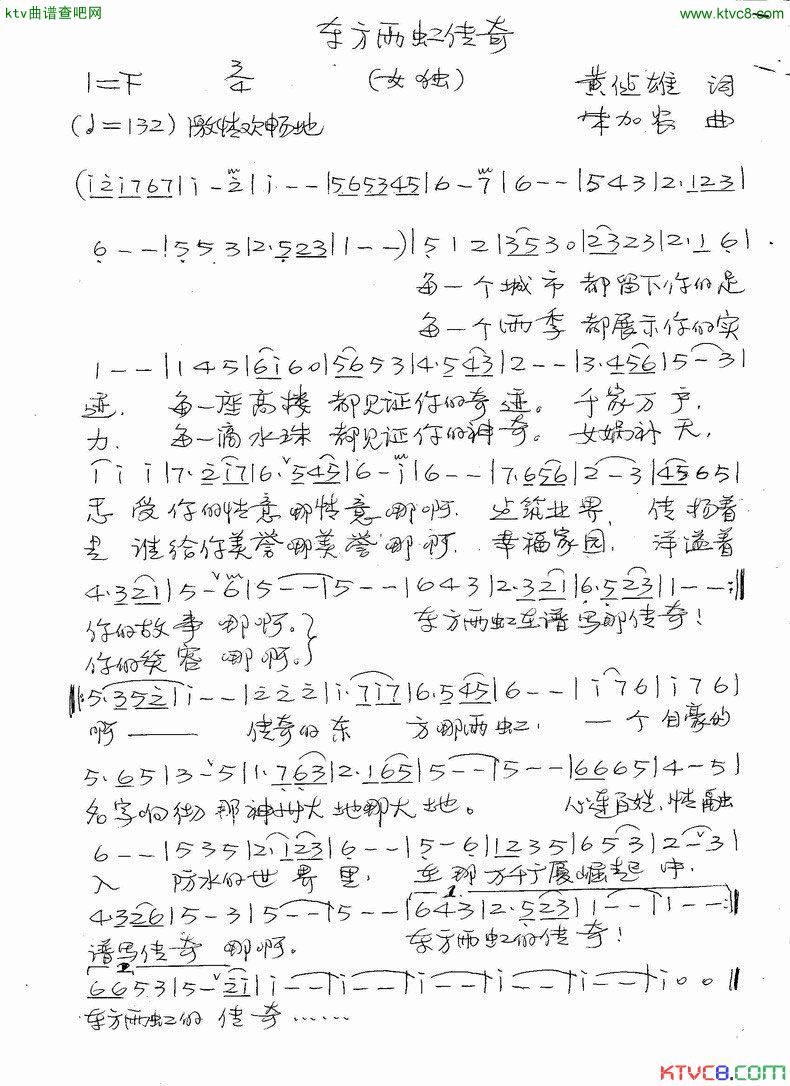 ktv曲谱查吧网 www.ktvc8.com
东方雨虹传奇
1=F 3/4 (女独) 黄 雄 词
(♩=132) 激情欢畅地 加农 曲
(i̇ 2̇ i̇ 7 6 7 | i̇ - 2̇ | i̇ - - | 5 6 5 3 4 5 | 6 - 7 | 6 - - | 5 4 3 | 2· 1 2 3 |
6 - - | 5 5 3 | 2· 5 2 3 | 1 - - ) | 5 1 2 | 3 5 3 0 | 2 3 2 3 | 2· 1 6 |
每一个城市 都留下你的足
每一个雨季 都展示你的实
1 - - | 1 4 5 | 6 i̇ 6 0 | 5 6 5 3 | 4· 5 4 3 | 2 - - | 3· 4 5 6 | 5 - 3 |
迹. 每一座高楼 都见证你的奇迹。 千家万户,
力. 每一滴水珠 都见证你的神奇。 女娲补天,
i̇ i̇ i̇ | 7· 2̇ i̇ 7 | 6· 5 4 5 | 6 - i̇ | 6 - - | 7· 6 5 6 | 2 - 3 | 4 5 6 5 |
受你的情意哪情意哪啊. 筑业界, 传扬着
是 谁给你美誉哪美誉哪 啊. 幸福家园, 洋溢着
4· 3 2 1 | 5 - 6 | 5 - - | 5 - - | 0 4 3 | 2· 3 2 1 | 6· 5 2 3 | 1 - - :‖
你的故事 哪啊。} 东方雨虹在谱写那传奇!
你的笑容 哪啊。}
‖: 5· 3 5 2̇ | i̇ - - | 2̇ 2̇ 2̇ | i̇· 7 i̇ 7 | 6· 5 4 5 | 6 - - | i̇ 7 6 | i̇ 7 6 |
啊—— 传奇的东 方哪雨虹, 一个自豪的
5· 6 5 | 3 - 5 | 1· 7 6 3 | 2· 1 6 5 | 5 - - | 5 - - | 6 6 6 5 | 4 - 5 |
名字响彻那神州大地哪大 地。 心连百姓,情融
6 - - | 5 3 5 | 2· 1 2 3 | 6 - - | 5 - 6 | 1 2 3 5 | 6 5 3 | 2 - 3 |
入 防水的世 界里, 在那万千广厦崛起 中,
4· 3 2 6 | 5 - 3 | 5 - - | 5 - - | 1. 6 4 3 | 2· 5 2 3 | 1 - - | 1 - - :‖
谱写传奇 哪啊。 东方雨虹的传奇!
2. 6 6 5 3 | 5 - 2̇ i̇ | i̇ - - | i̇ - - | i̇ - - | i̇ - - | i̇ - - | i̇ 0 0 ‖
东方雨虹的 传 奇……
KTVC8.COM